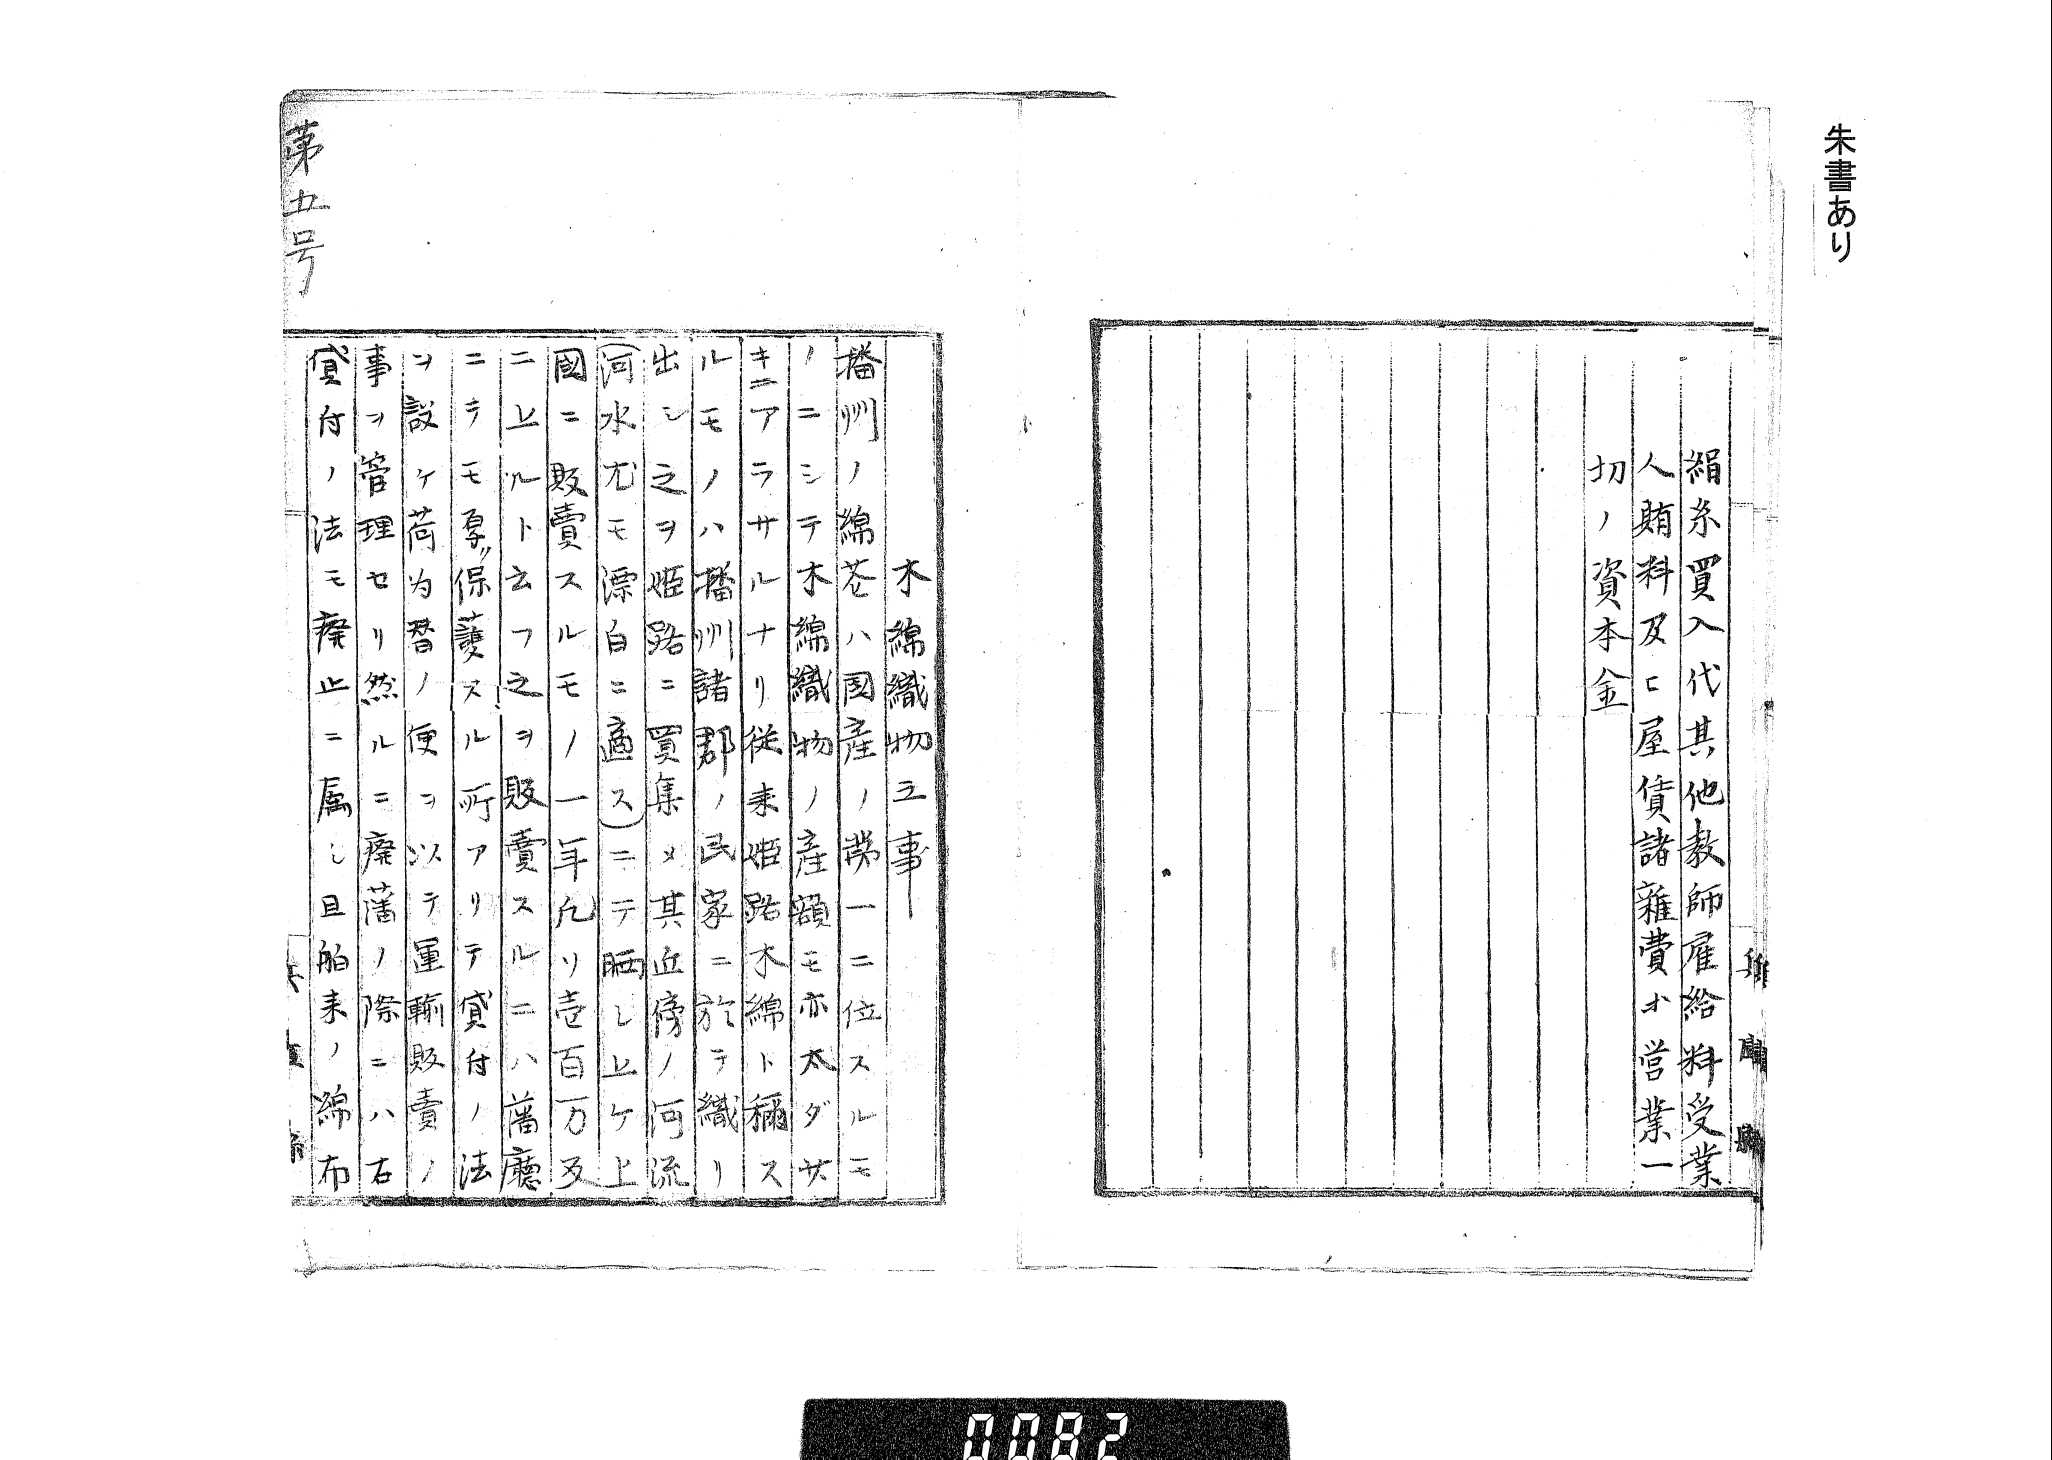 朱書あり
絹糸買入代其他教師雇給料受業
人賄料及ヒ屋賃諸雑費オ営業一
切ノ資本金
兵庫縣
第五号
木綿織物之事
播州ノ綿花ハ国産ノ第一ニ位スルモ
ノニシテ木綿織物ノ産額モ亦太ダ少
キニアラサルナリ従来姫路木綿ト稱ス
ルモノハ播州諸郡ノ民家ニ於テ織リ
出シ之ヲ姫路ニ買集メ其近傍ノ河流
(河水尤モ漂白ニ適ス)ニテ晒シ上ケ上
國ニ販賣スルモノ一年凡ソ壱百万反
ニ上ルト云フ之ヲ販賣スルニハ藩廳
ニテモ厚ク保護スル所アリテ貸付ノ法
ヲ設ケ荷为替ノ便ヲ以テ運輸販賣ノ
事ヲ管理セリ然ルニ廃藩ノ際ニハ右
貸付ノ法モ廃止ニ属シ且舶来ノ綿布
0082